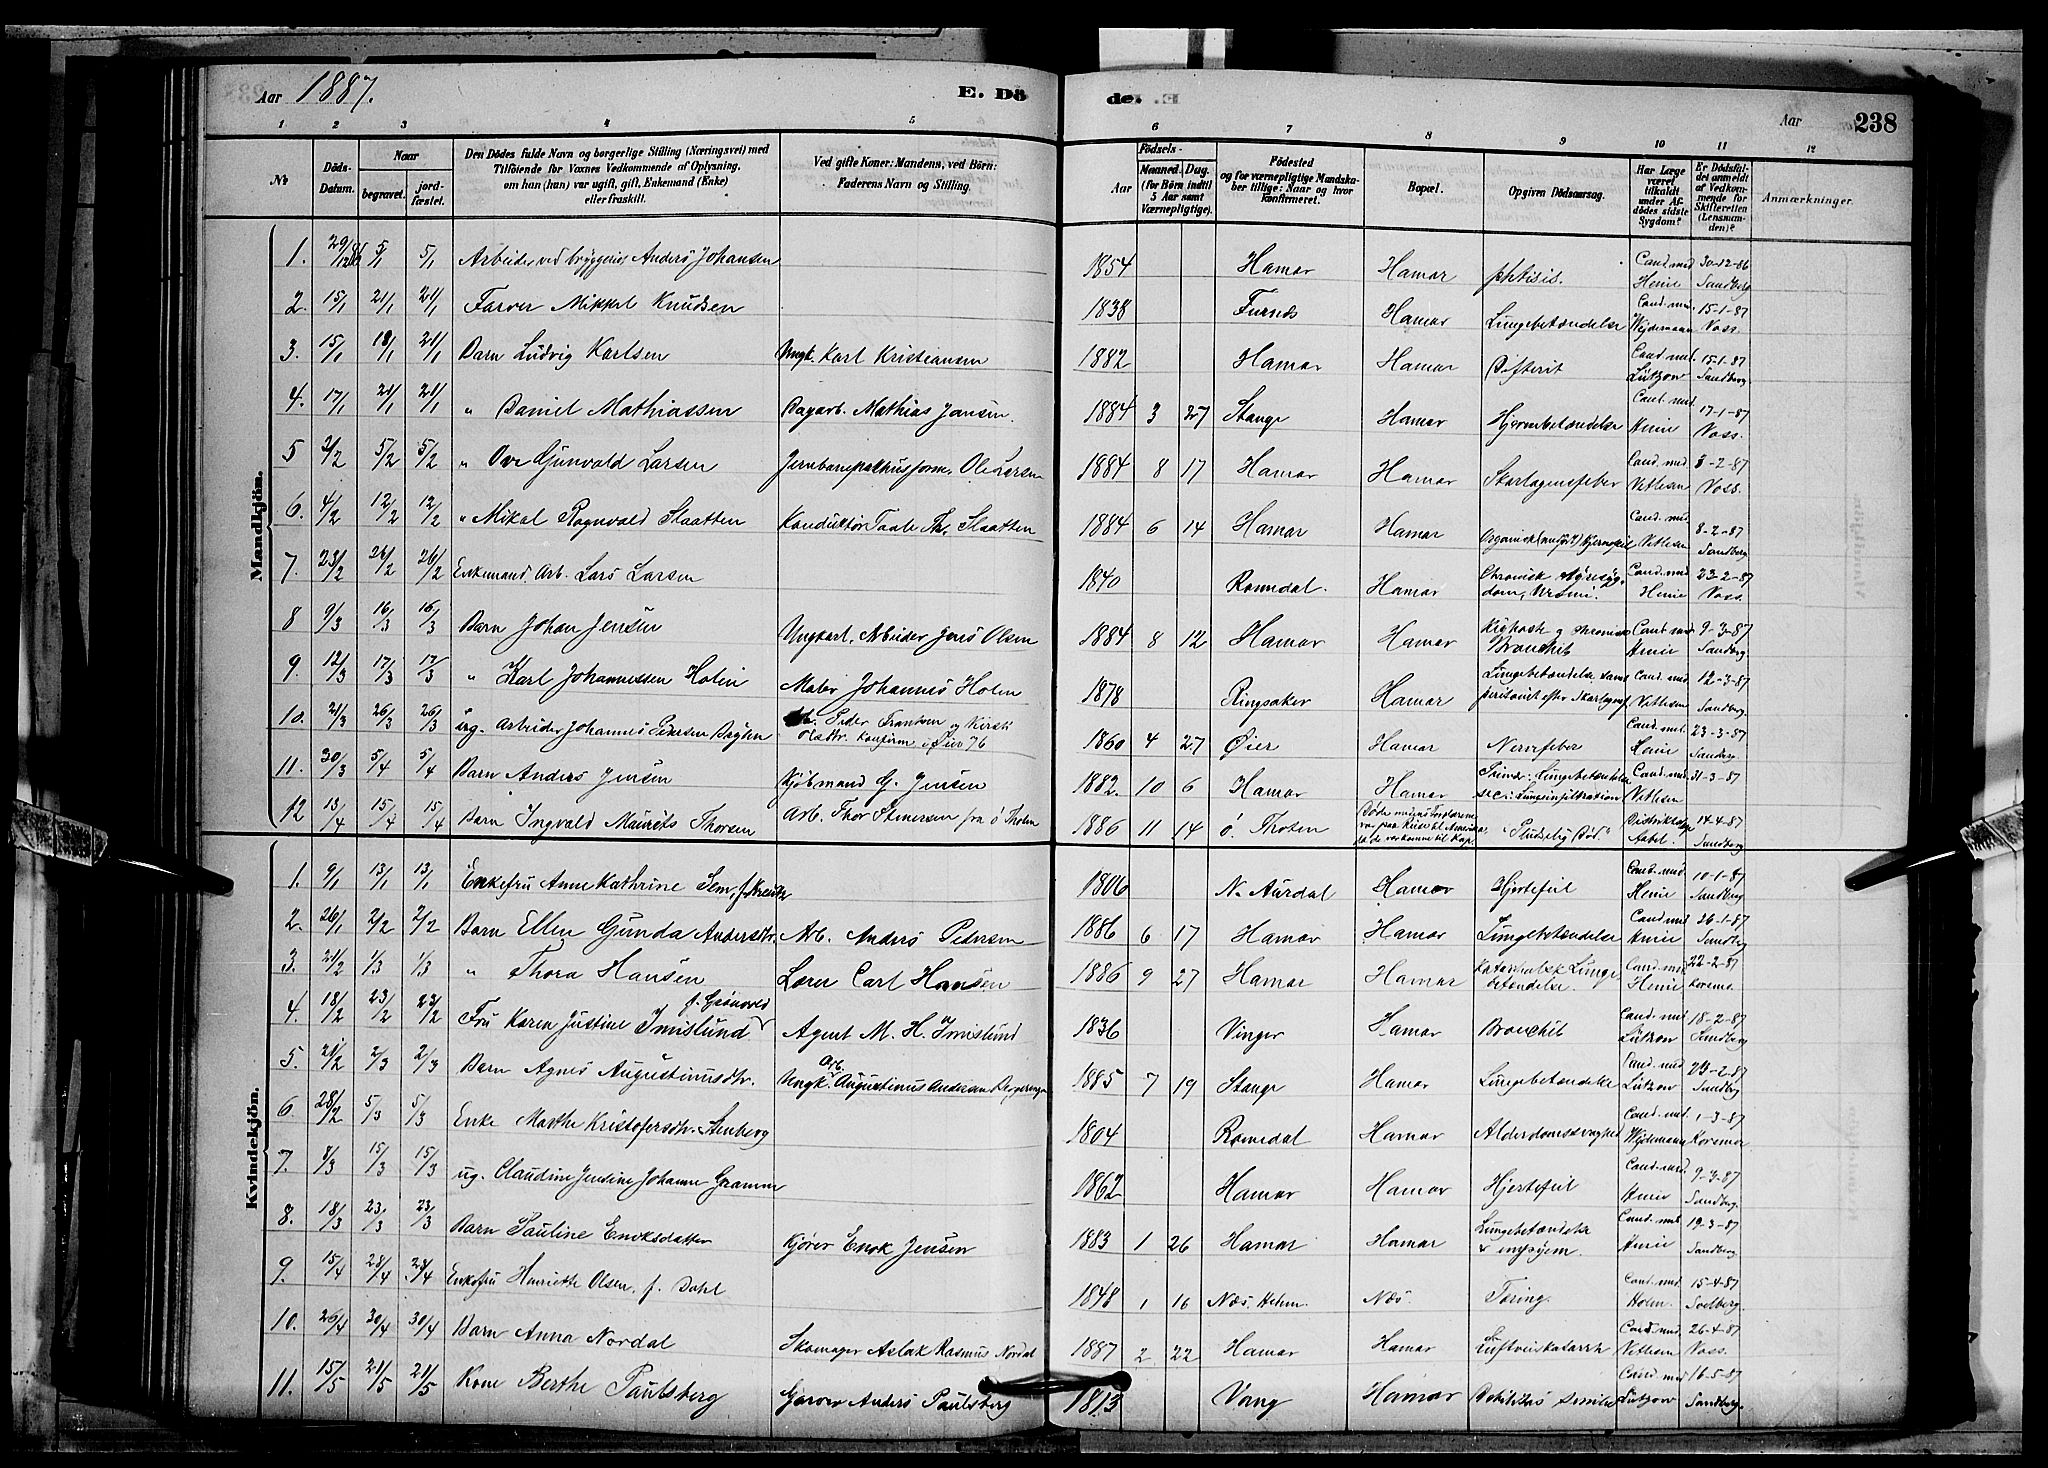 Aar 1887. E. Dö
de. Aar 238
1 2 3 4 5 6 7 8 9 10 11 12
No Döds-Datum. Naar begravet. jord-fæstet. Den Dödes fulde Navn og borgerlige Stilling (Næringsvei) med Tilföiende for Voxnes Vedkommende af Oplysning, om han (hun) var ugift, gift, Enkemand (Enke) eller fraskilt. Ved gifte Koner: Mandens, ved Börn: Faderens Navn og Stilling. Födsels- Aar Maaned. Dag. (for Børn indtil 5 Aar samt Værnepligtige). Födested og for værnepligtige Mandskaber tillige: Naar og hvor konfirmeret. Bopæl. Opgiven Dödsaarsag. Har Læge været tilkaldt under Afdödes sidste Sygdom? Er Dödsfaldet anmeldt af Vedkommende for Skifteretten (Lensmanden)? Anmærkninger.
Mandkjön.
1. 29/12 86 5/1 5/1 Arbeider ved bryggeriet Anders Johansen 1854 Hamar Hamar phtisis. Cand. med Henie 30-12-86 Sandberg
2. 15/1 21/1 21/1 Farver Mikkel Knudsen 1838 Furnes Hamar Lungebetændelse Cand. med. Wejdemann 15-1-87 Voss.
3. 15/1 18/1 21/1 Barn Ludvig Karlsen Ungk. Karl Kristiansen 1882 Hamar Hamar Difterit Cand. med. Lützow 15-1-87 Sandberg
4. 17/1 21/1 21/1 " Daniel Mathiassen Dagarb. Mathias Jansen. 1884 3 27 Stange Hamar Hjernebetændelse Cand. med Henie 17-1-87 Voss.
5 2/2 5/2 5/2 " Ove Gunvald Larsen Jernbanepakhusform. Ole Larsen 1884 8 17 Hamar Hamar Skarlagensfeber Cand. med Vethesen 3-2-87 Voss.
6. 4/2 12/2 12/2 " Mikal Ragnvald Slaatten Konduktør Taale Th. Slaatten 1884 6 14 Hamar Hamar Organisk Hjertefeil Cand. med Vethesen 8-2-87 Sandberg
7. 23/2 26/2 26/2 Enkemand Arb. Lars Larsen 1840 Romedal. Hamar Chronisk Nyresygdom, Uræmi. Cand. med Henie 23-2-87 Voss.
8 9/3 16/3 16/3 Barn Johan Jensen Ungkarl, Arbeider Jens Olsen 1884 8 12 Hamar Hamar Kighoste og chronisk Bronchit Cand. med Henie 9-3-87 Sandberg.
9. 12/3 17/3 17/3 " Karl Johannessen Holen Maler Johannes Holen 1878 Ringsaker Hamar Lungebetændelse samt peritonit efter Skarlagensf. Cand. med. Vethesen 12-3-87 Sandberg.
10. 21/3 26/3 26/3 ug. Arbeider Johannes Pedersen Arb. Peder Frantsen og Kirsti Olsdtr. Konfirm. i Øier 76 1860 4 27 Øier Hamar Nervefeber Cand. med. Henie 23-3-87 Sandberg.
11. 30/3 5/4 5/4 Barn Anders Jensen Kjøbmand G. Jensen 1882. 10 6 Hamar Hamar Lungebetændelse Cand. med Vethesen 31-3-87
12 13/4 15/4 15/4 Barn Ingvald Maurits Thorsen Arb. Thor Stenersen fra ø Thoten 1886 11 14 ø. Thoten Døde medens Forældrene var paa Reise til Amerika "Pludselig Død." Distriktslæge Aabel 14-4-87 Sandberg
Kvindekjön.
1. 9/1 13/1 13/1 Enkefru Anne Kathrine Sem, f. Kreutz 1806 N. Aurdal Hamar Hjertefeil Cand. med Henie 10-1-87 Sandberg
2. 26/1 2/2 2/2 Barn Ellen Gunda Andersdtr. Arb. Anders Pedersen 1886 6 17 Hamar Hamar Lungebetændelse Cand. med Henie 26-1-87 Sandberg
3. 21/2 1/3 1/3 " Thora Hansen Lærer Carl Hansen 1886 9 27 Hamar Hamar Katarrhalsk Lungebetændelse. Cand. med Henie 22-2-87 Korsmo.
4. 18/2 23/2 23/2 Fru Karen Justine Imislund f. Grønvold Agent M. H. Imislund 1836 Vinger Hamar Bronchit Cand. med Lützow 18-2-87 Sandberg
5. 21/2 2/3 2/3 Barn Agnes Augustinusdtr. Ungk. Arb. Augustinus Andersen 1885 7 19 Stange Hamar Lungebetændelse Cand. med Lützow Sandberg
6. 28/2 5/3 5/3 Enke Marthe Kristofersdtr. Stenberg 1804 Romedal Hamar Alderdomssvaghed Cand. med. Wejdemann 1-3-87 Korsmo
7. 8/3 15/3 15/3 ug. Claudine Jensine Johanne Gramm 1862 Hamar Hamar Hjertefeil Cand. med. Henie 9-3-87 Sandberg.
8. 18/3 23/3 23/3 Barn Pauline Enoksdatter Kjører Enok Jensen 1883 1 26 Hamar Hamar Lungebetændelse & empyem. Cand. med Henie 19-3-87 Sandberg
9. 15/4 23/4 23/4 Enkefru Henriette Olsen, f. Dahl 1848 1 16 Næs, Hedem. Næs. Tæring. Cand. med Holm. 15-4-87 Solberg.
10. 26/4 30/4 30/4 Barn Anna Nordal Skomager Aslak Rasmus Nordal 1887 2 22 Hamar Hamar Luftveiskatarrh Cand. med Vethesen 26-4-87 Voss.
11. 15/5 21/5 21/5 Kone Berthe Paulsberg Garver Anders Paulsberg 1813 Vang Hamar Debilitas senilis Cand. med Lützow 16-5-87 Sandberg.